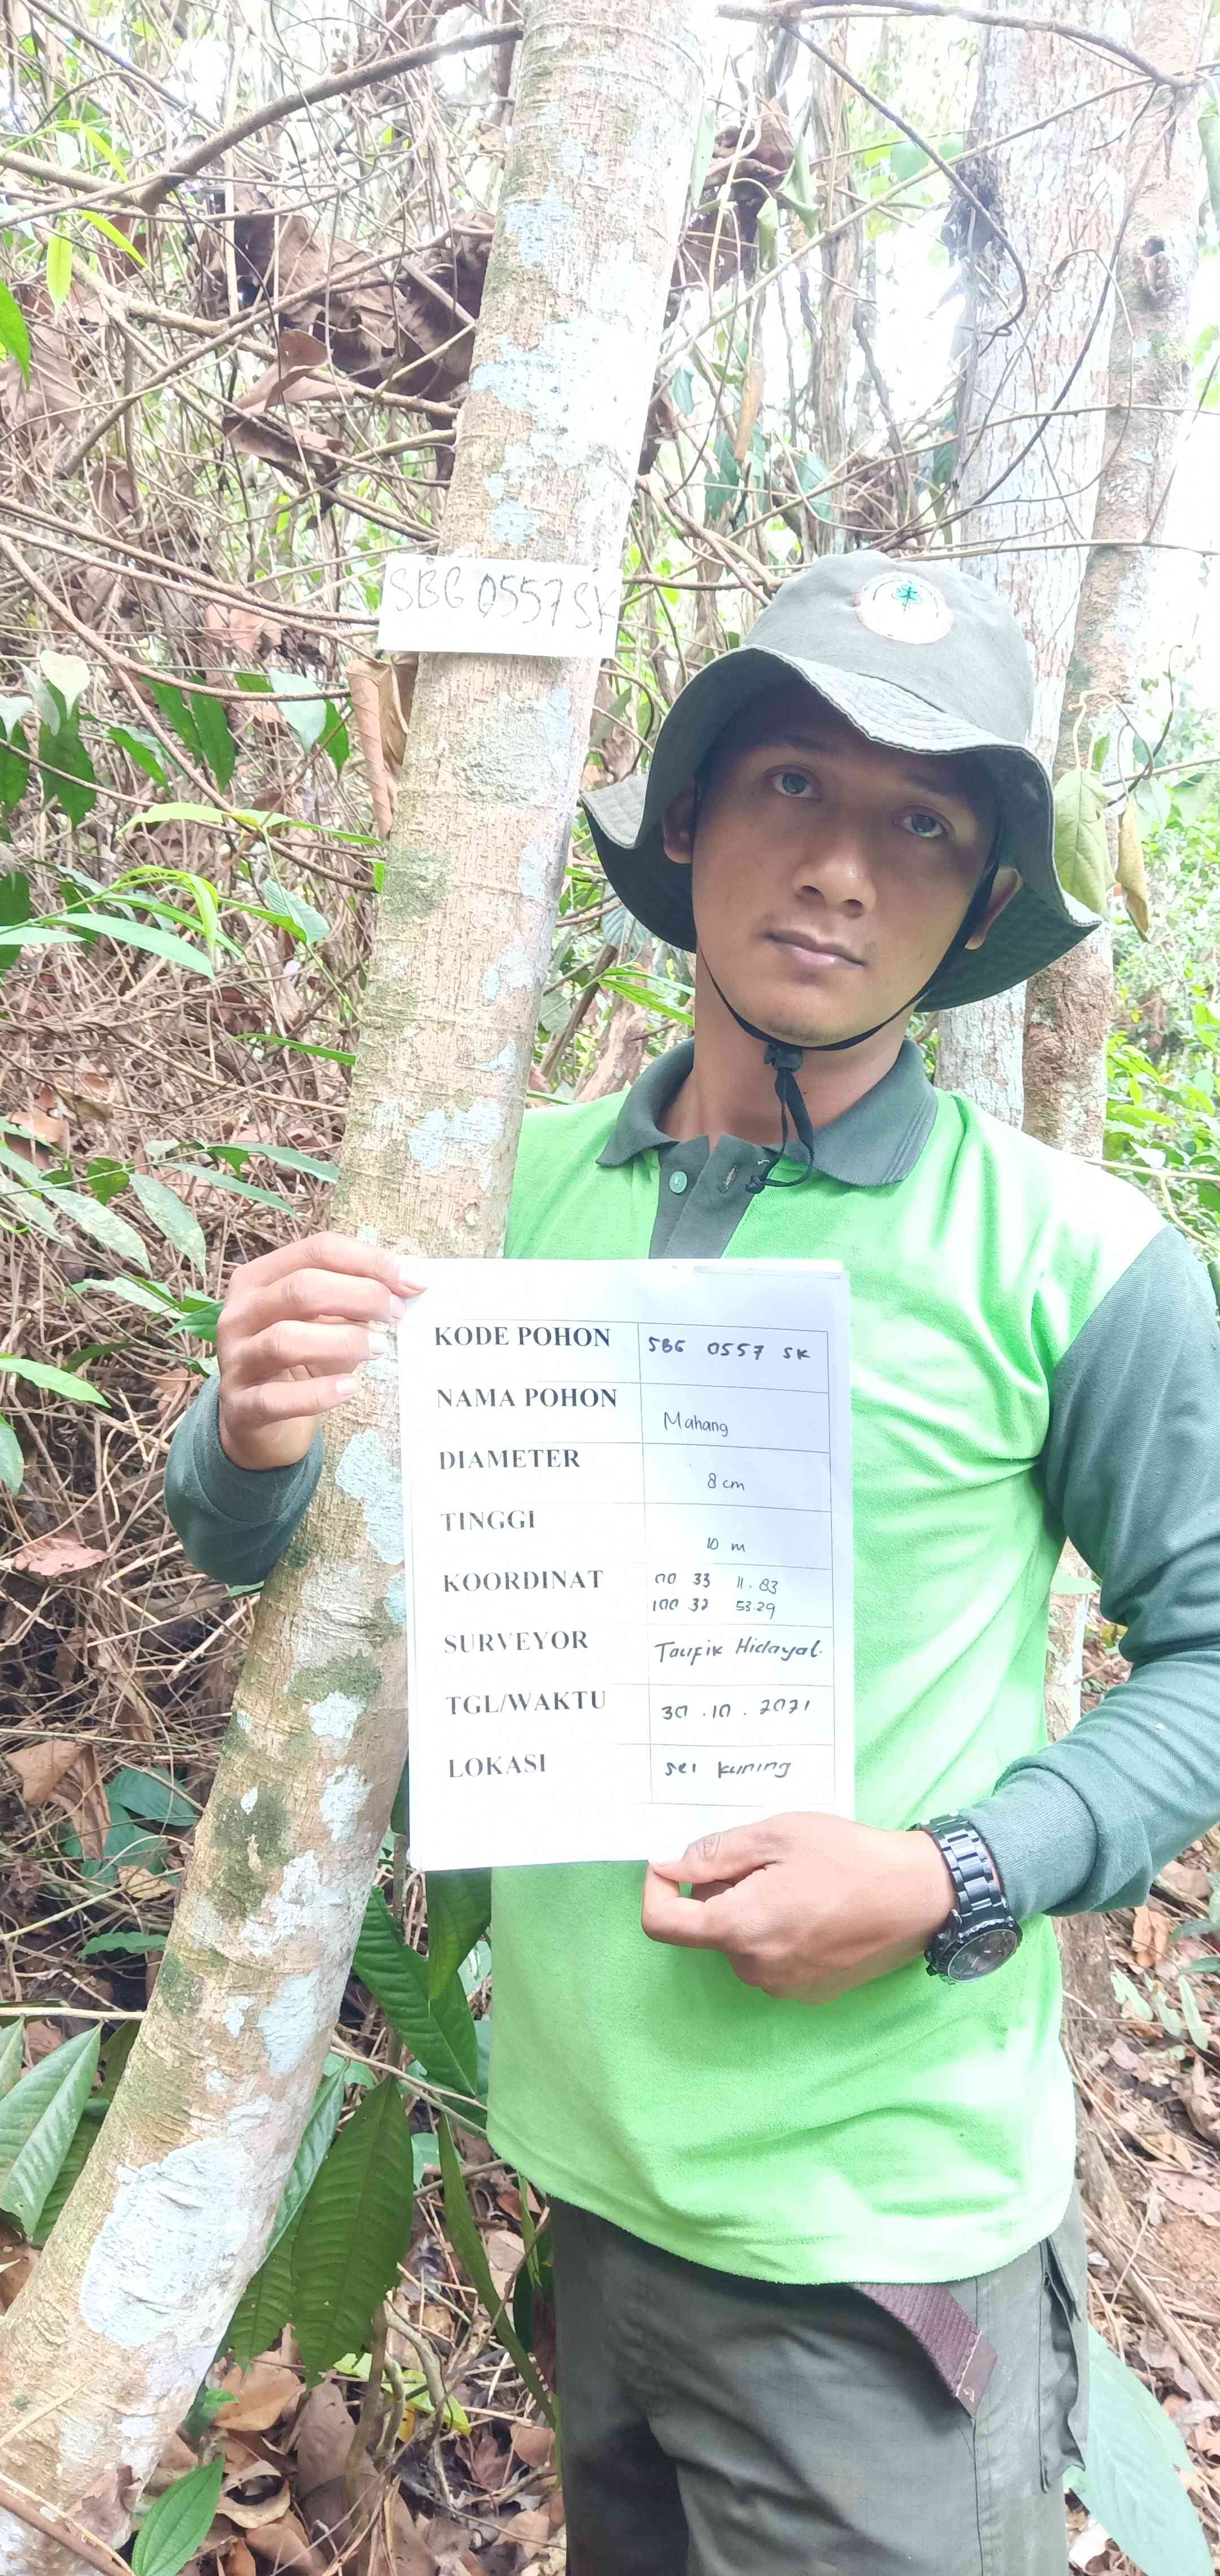 SBG 0557 SK
KODE POHON SBG 0557 SK
NAMA POHON Mahang
DIAMETER 8 cm
TINGGI 10 m
KOORDINAT 00 33 11.83
100 32 53.29
SURVEYOR Taufik Hidayat.
TGL/WAKTU 30.10.2021
LOKASI Sei Kuning